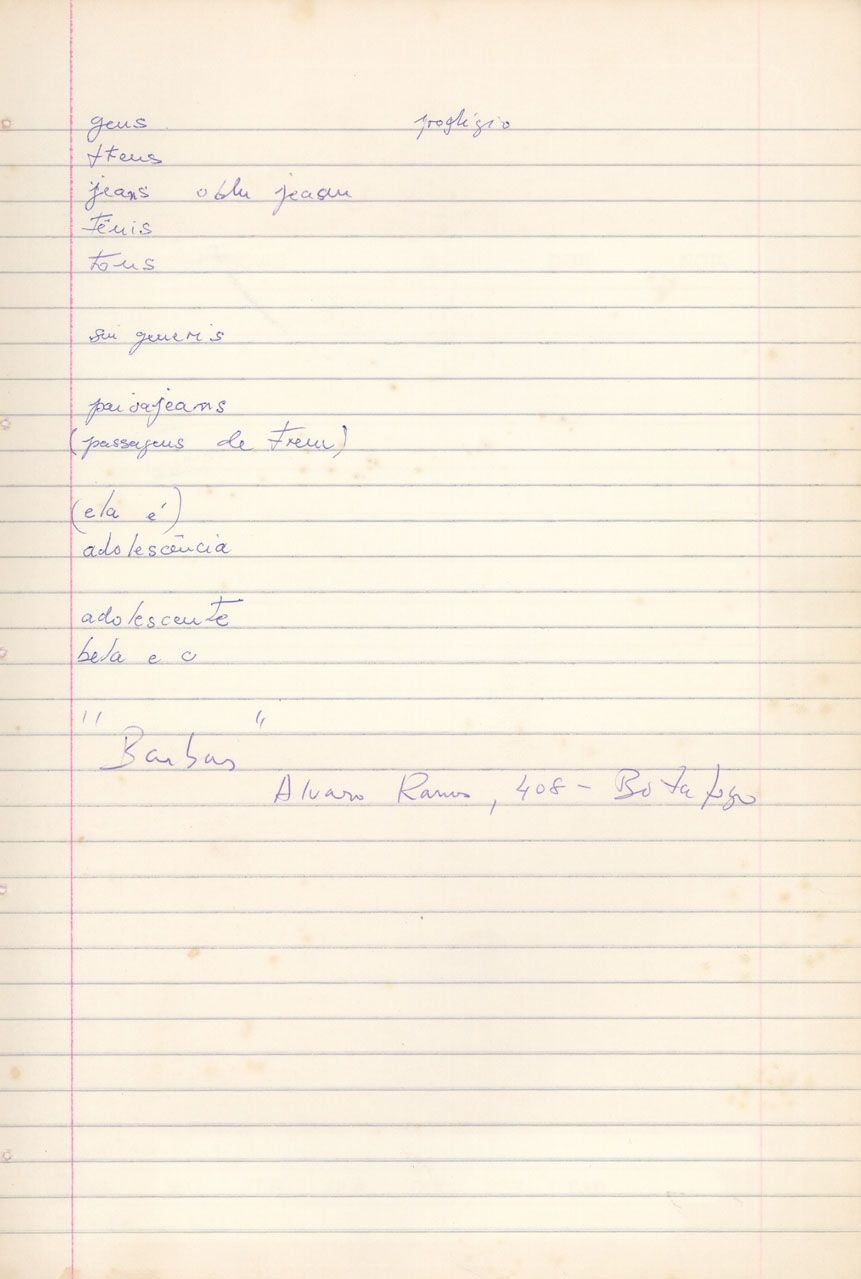 gens prodígio
trens
jeans
tênis
tons
sui generis
paisajeans
(passagens de trem)
(ela é)
adolescência
adolescente
bela e o
"Barbas"
Alvaro Ramos, 408 - Botafogo